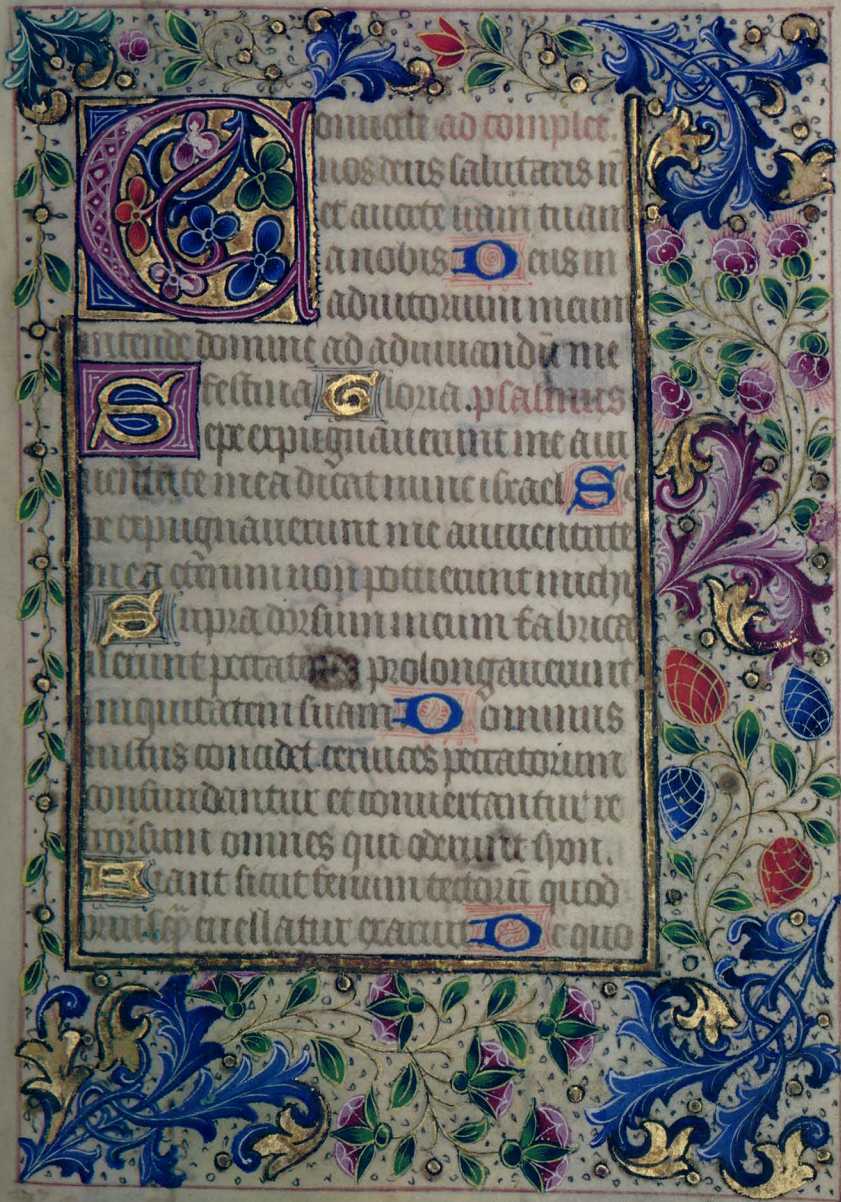 Conuerte ad complet.
nos deus salutaris n̄
et auerte iram tuam
a nobis Deus in
adiutorium meum
intende domine ad adiuuandū me
festina Gloria. psalmus
Sepe expugnauerunt me a iu
uentute mea dicat nunc israel Se
pe expugnauerunt me a iuuentute
mea etenim non potuerunt michi
Supra dorsum meum fabrica
uerunt peccatores prolongauerunt
iniquitatem suam Dominus
iustus concidet ceruices peccatorum
confundantur et conuertantur re
trorsum omnes qui oderunt syon.
Fiant sicut fenum tectorū quod
priusqȝ euellatur exaruit De quo